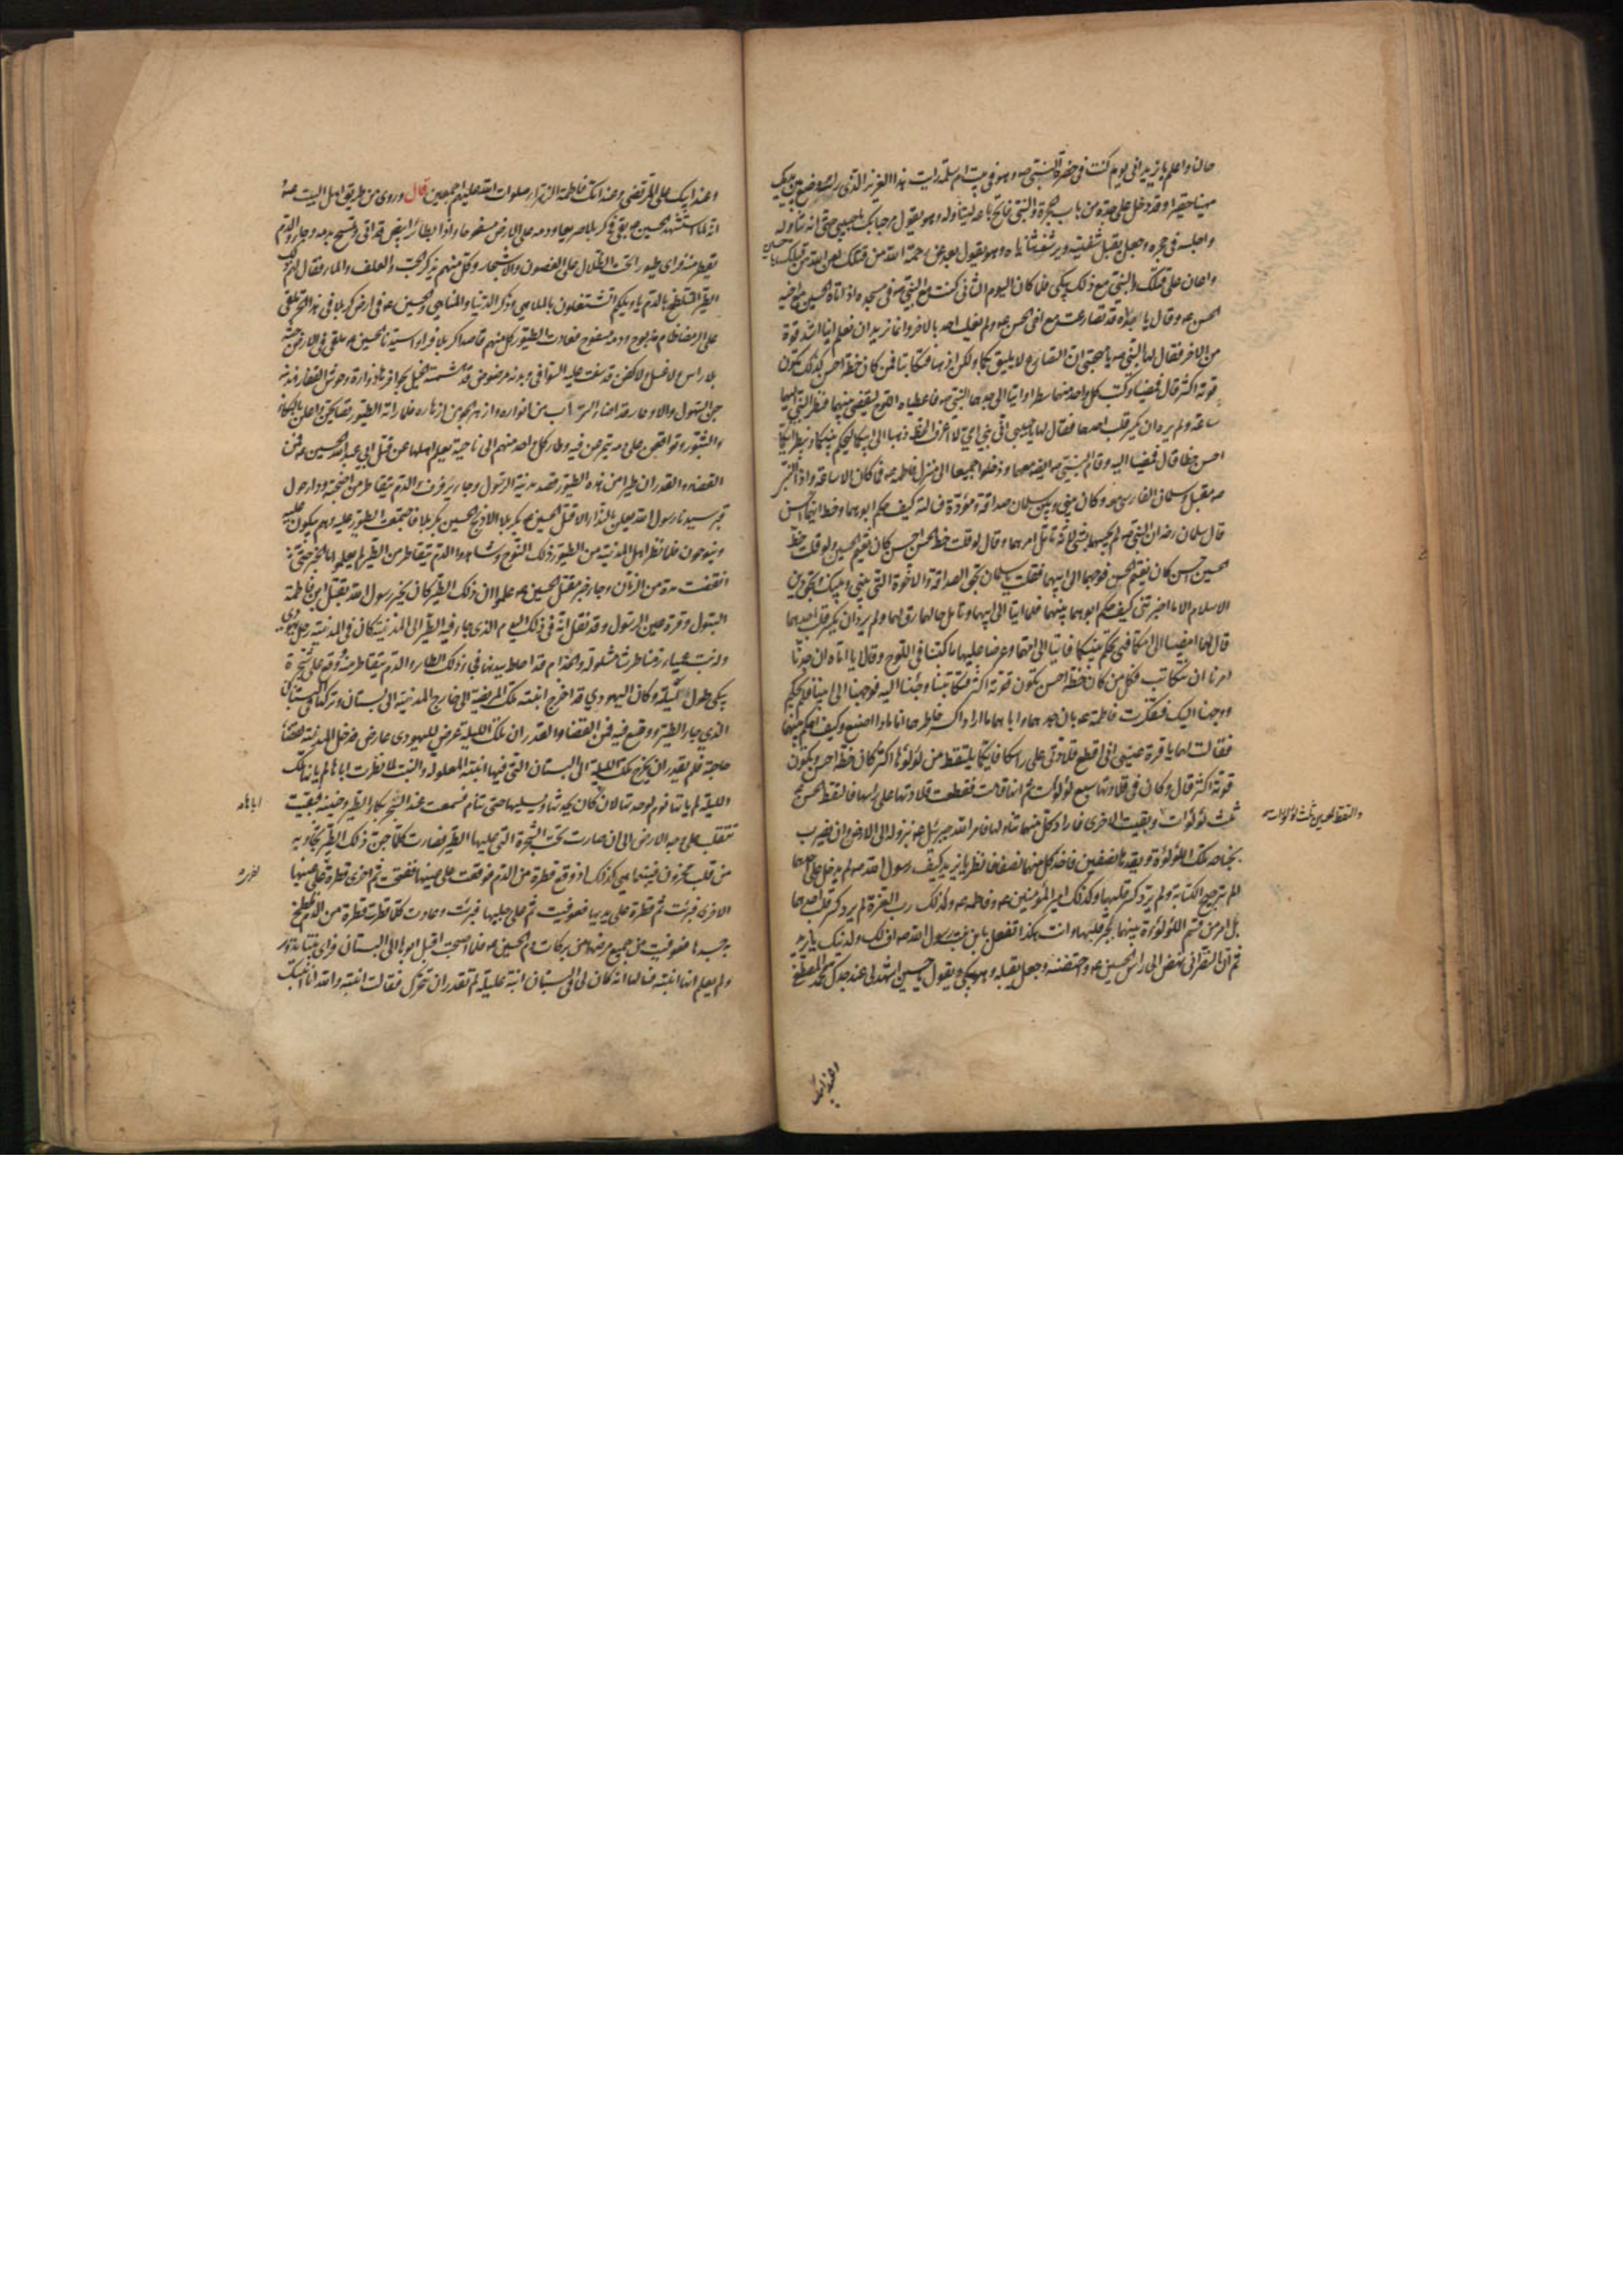 حاله واعلم يا يزيد انى يوم كنت فى حضرة النبي صه وهو فى بيت ام سلمة رايت هذا العزيز الذى راسه وضع بين يديك
مهينا حقيرا وقد دخل على جده من باب الحجرة والنبي فاتح باعه ليتناوله وهو يقول مرحبا بك يا حبيبي حتى انه تناوله
واجلسه فى حجره وجعل يقبل شفتيه ويرشف ثناياه وهو يقول بعد عن رحمة الله من قتلك لعن الله من قتلك يا حسين
واعان على قتلك والنبي مع ذلك يبكى فلما كان اليوم الثانى كنت مع النبي صه فى مسجده اذ اتاه الحسين مع اخيه
الحسن عه وقال يا جداه قد تصارعت مع اخى الحسن عه ولم يغلب احدنا الاخر وانما نريد ان نعلم اينا اشد قوة
من الاخر فقال لهما النبي صه يا حبيبي ان التصارع لا يليق بكما ولكن اذهبا فتكاتبا فمن كان خطه احسن كذلك تكون
قوته اكثر قال فمضيا وكتب كل واحد منهما سطرا واتيا الى جدهما النبي صه فاعطياه اللوح ليقضى بينهما فنظر النبي اليهما
ساعة ولم يرد ان يكسر قلب احدهما فقال لهما يا حبيبي انى نبي امي لا اعرف الخط اذهبا الى ابيكما ليحكم بينكما وينظر ايكما
احسن خطا قال فمضيا اليه وقام النبي صه ايضا معهما ودخلوا جميعا الى منزل فاطمه عه فما كان الا ساعة واذا النبي
صه مقبل وسلمان الفارسى معه وكان بينى وبين سلمان صداقة ومودة فسالته كيف حكم ابوهما وخط ايهما احسن
قال سلمان رضه ان النبي صه لم يجبهما بشئ لانه تامل امرهما وقال لو قلت خط الحسن احسن كان يغتم الحسين ولو قلت خط
الحسين احسن كان يغتم الحسن فوجههما الى ابيهما فقلت يا سلمان بحق الصداقة والاخوة التى بينى وبينك وبحق دين
الاسلام الا ما اخبرتنى كيف حكم ابوهما بينهما فقال لما اتيا الى ابيهما وتامل حالهما رق لهما ولم يرد ان يكسر قلب احدهما
قال لهما امضيا الى امكما فهى تحكم بينكما فاتيا الى امهما وعرضا عليها ما كتبا فى اللوح وقالا يا اماه ان جدنا
امرنا ان نتكاتب فكل من كان خطه احسن تكون قوته اكثر فتكاتبنا وجئنا اليه فوجهنا الى ابينا فلم يحكم
ووجهنا اليك فتفكرت فاطمة عه بان جدهما واباهما ما ارادا كسر خاطرهما انا ماذا اصنع وكيف احكم بينهما
فقالت لهما يا قرة عينى انى اقطع قلادتى على راسكما فايكما يلتقط من لؤلؤها اكثر كان خطه احسن وتكون
قوته اكثر قال وكان فى قلادتها سبع لؤلؤات ثم انها قامت فقطعت قلادتها على راسهما فالتقط الحسن عه
ثلث لؤلؤات وبقيت الاخرى فاراد كل منهما تناولها فامر الله جبرئيل عه بنزوله الى الارض وان يضرب
والتقط الحسين ثلث لؤلؤات
بجناحه تلك اللؤلؤة ويقدها نصفين فاخذ كل منهما نصفا فانظر يا يزيد كيف رسول الله صه لم يدخل على احدهما
الم ترجيح الكتابة ولم يرد كسر قلبهما وكذلك امير المؤمنين عه وفاطمه عه وكذلك رب العزة لم يرد كسر قلب احدهما
بل امر من قسم اللؤلؤة بينهما لجبر قلبهما وانت هكذا تفعل بابن بنت رسول الله صه اف لك ولدينك يا يزيد
ثم ان النصرانى نهض الى راس الحسين عه واحتضنه وجعل يقبله وهو يبكى ويقول يا حسين اشهد لى عند جدك محمد المصطفى
وعند ابيك
وعند ابيك على المرتضى وعند امك فاطمة الزهراء صلوات الله عليهم اجمعين قال وروى من طريق اهل البيت عه
انه لما استشهد الحسين عه بقى فى كربلا صريعا ودمه على الارض مسفوحا واذا بطائر ابيض قد اتى وتمسح بدمه وجاء والدم
يقطر منه فراى طيورا تحت الظلال على الغصون والاشجار وكل منهم يذكر الحب والعلف والماء فقال لهم ذلك
الطير المتلطخ بالدم يا ويلكم اتشتغلون بالملاهى وذكر الدنيا والمناهى والحسين عه فى ارض كربلا فى هذا الحر ملقى
على الرمضاء ظام مذبوح ودمه مسفوح فعادت الطيور كل منهم قاصدا كربلا فراوا سيدنا الحسين عه ملقى فى الارض جثة
بلا راس ولا غسل ولا كفن قد سفت عليه السوافى وبدنه مرضوض قد هشمته الخيل بحوافرها زواره وحوش القفار وندبته
جن السهول والاوعار قد اضاء التراب من انواره وازهر الجو من ازهاره فلما راته الطيور تصايحن واعلن بالبكاء
والثبور وتواقعن على دمه يتمرغن فيه وطار كل واحد منهم الى ناحية يعلم اهلها عن قتل ابى عبدالله الحسين عه فمن
القضاء والقدر ان طيرا من هذه الطيور قصد مدينة الرسول وجاء يرفرف والدم يتقاطر من اجنحته ودار حول
قبر سيدنا رسول الله يعلن بالنداء الا قتل الحسين عه بكربلا الا ذبح الحسين بكربلا فاجتمعت الطيور عليه وهم يبكون عليه
وينوحون فلما نظر اهل المدينة من الطيور ذلك النوح وشاهدوا الدم يتقاطر من الطير لم يعلموا ما الخبر حتى
انقضت مدة من الزمان وجاء خبر مقتل الحسين عه علموا ان ذلك الطير كان يخبر رسول الله بقتل ابن فاطمة
البتول وقرة عين الرسول وقد نقل انه فى ذلك اليوم الذى جاء فيه الطير الى المدينة كان فى المدينة رجل يهودى
وله بنت عمياء زمنا طرشا مشلولة والجذام قد احاط ببدنها فجاء ذلك الطائر والدم يتقاطر منه ووقع على شجرة
يبكى طول ليلته وكان اليهودي قد اخرج ابنته تلك المريضة الى خارج المدينة الى بستان وتركها فى البستان
الذى جاء الطير ووقع فيه فمن القضاء والقدر ان تلك الليلة عرض لليهودى عارض فدخل المدينة لقضاء
حاجة فلم يقدر ان يخرج تلك الليلة الى البستان التى فيها ابنته المعلولة والبنت لما نظرت اباها لم ياتها تلك
الليلة لم ياتها نوم لوحدتها لان كان يحدثها ويسليها حتى تنام فسمعت عند السحر بكاء الطير وحنينه فبقيت
اباها
تتقلب على وجه الارض الى ان صارت تحت الشجرة التى عليها الطير فصارت كلما حن ذلك الطير تجاوبه
من قلب محزون فبينما هى كذلك اذ وقع قطرة من الدم فوقعت على عينها ففتحت ثم اخرى قطرة على عينها
الاخرى فبرئت ثم قطرة على يديها فعوفيت ثم على رجليها فبرئت وعادت كلما قطرت قطرة من الدم تلطخ
به جسدها فعوفيت من جميع مرضها من بركات دم الحسين عه فلما اصبحت اقبل ابوها الى البستان فراى بنتا تدور
ولم يعلم انها ابنته فسالها انه كان لى فى البستان ابنة عليلة لم تقدر ان تتحرك فقالت ابنته والله انا ابنتك